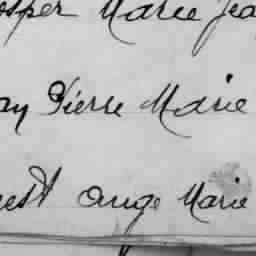 osper Marie Jea
ay Pierre Marie
uest Ange Marie